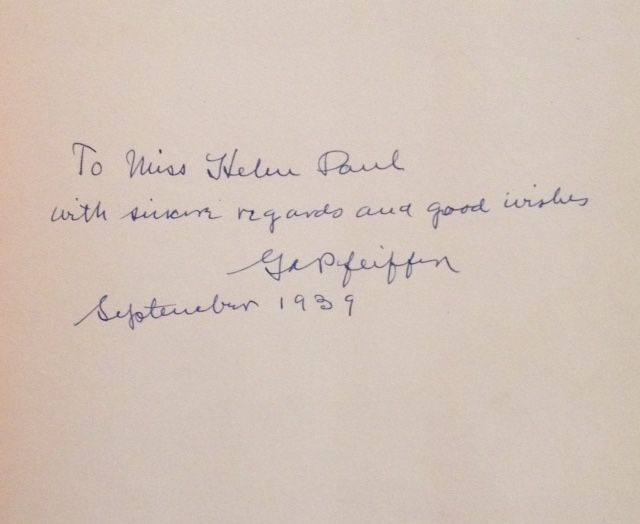 To Miss Helen Paul
with sincere regards and good wishes
GAPfeiffer
September 1939